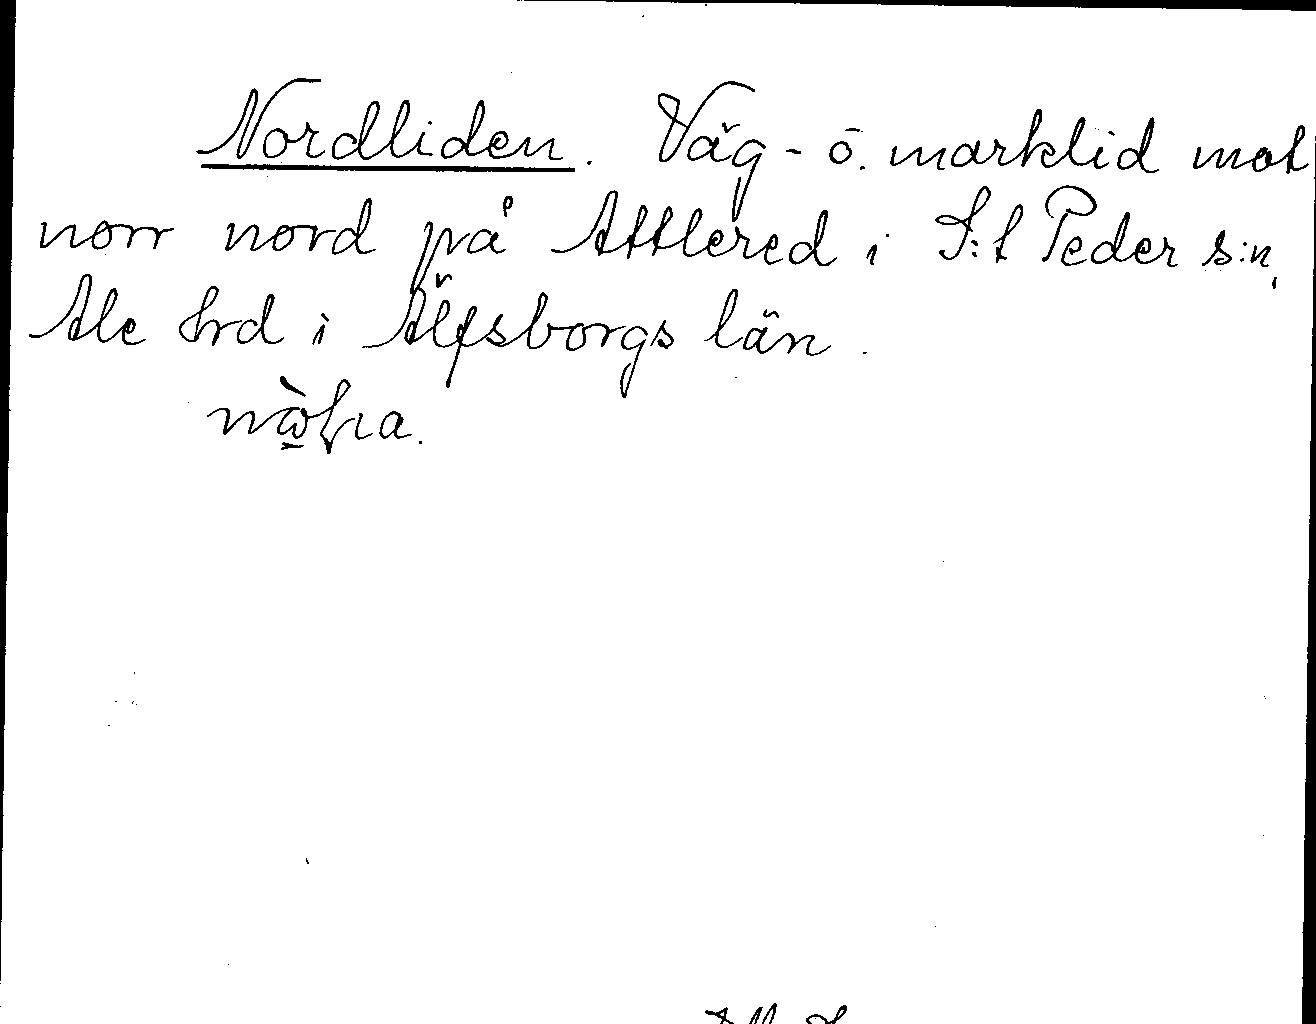 Nordliden. Väg- ö. marklid mot
norr nord på Attlered i S:t Peder s:n,
Ale hrd i Älfsborgs län.